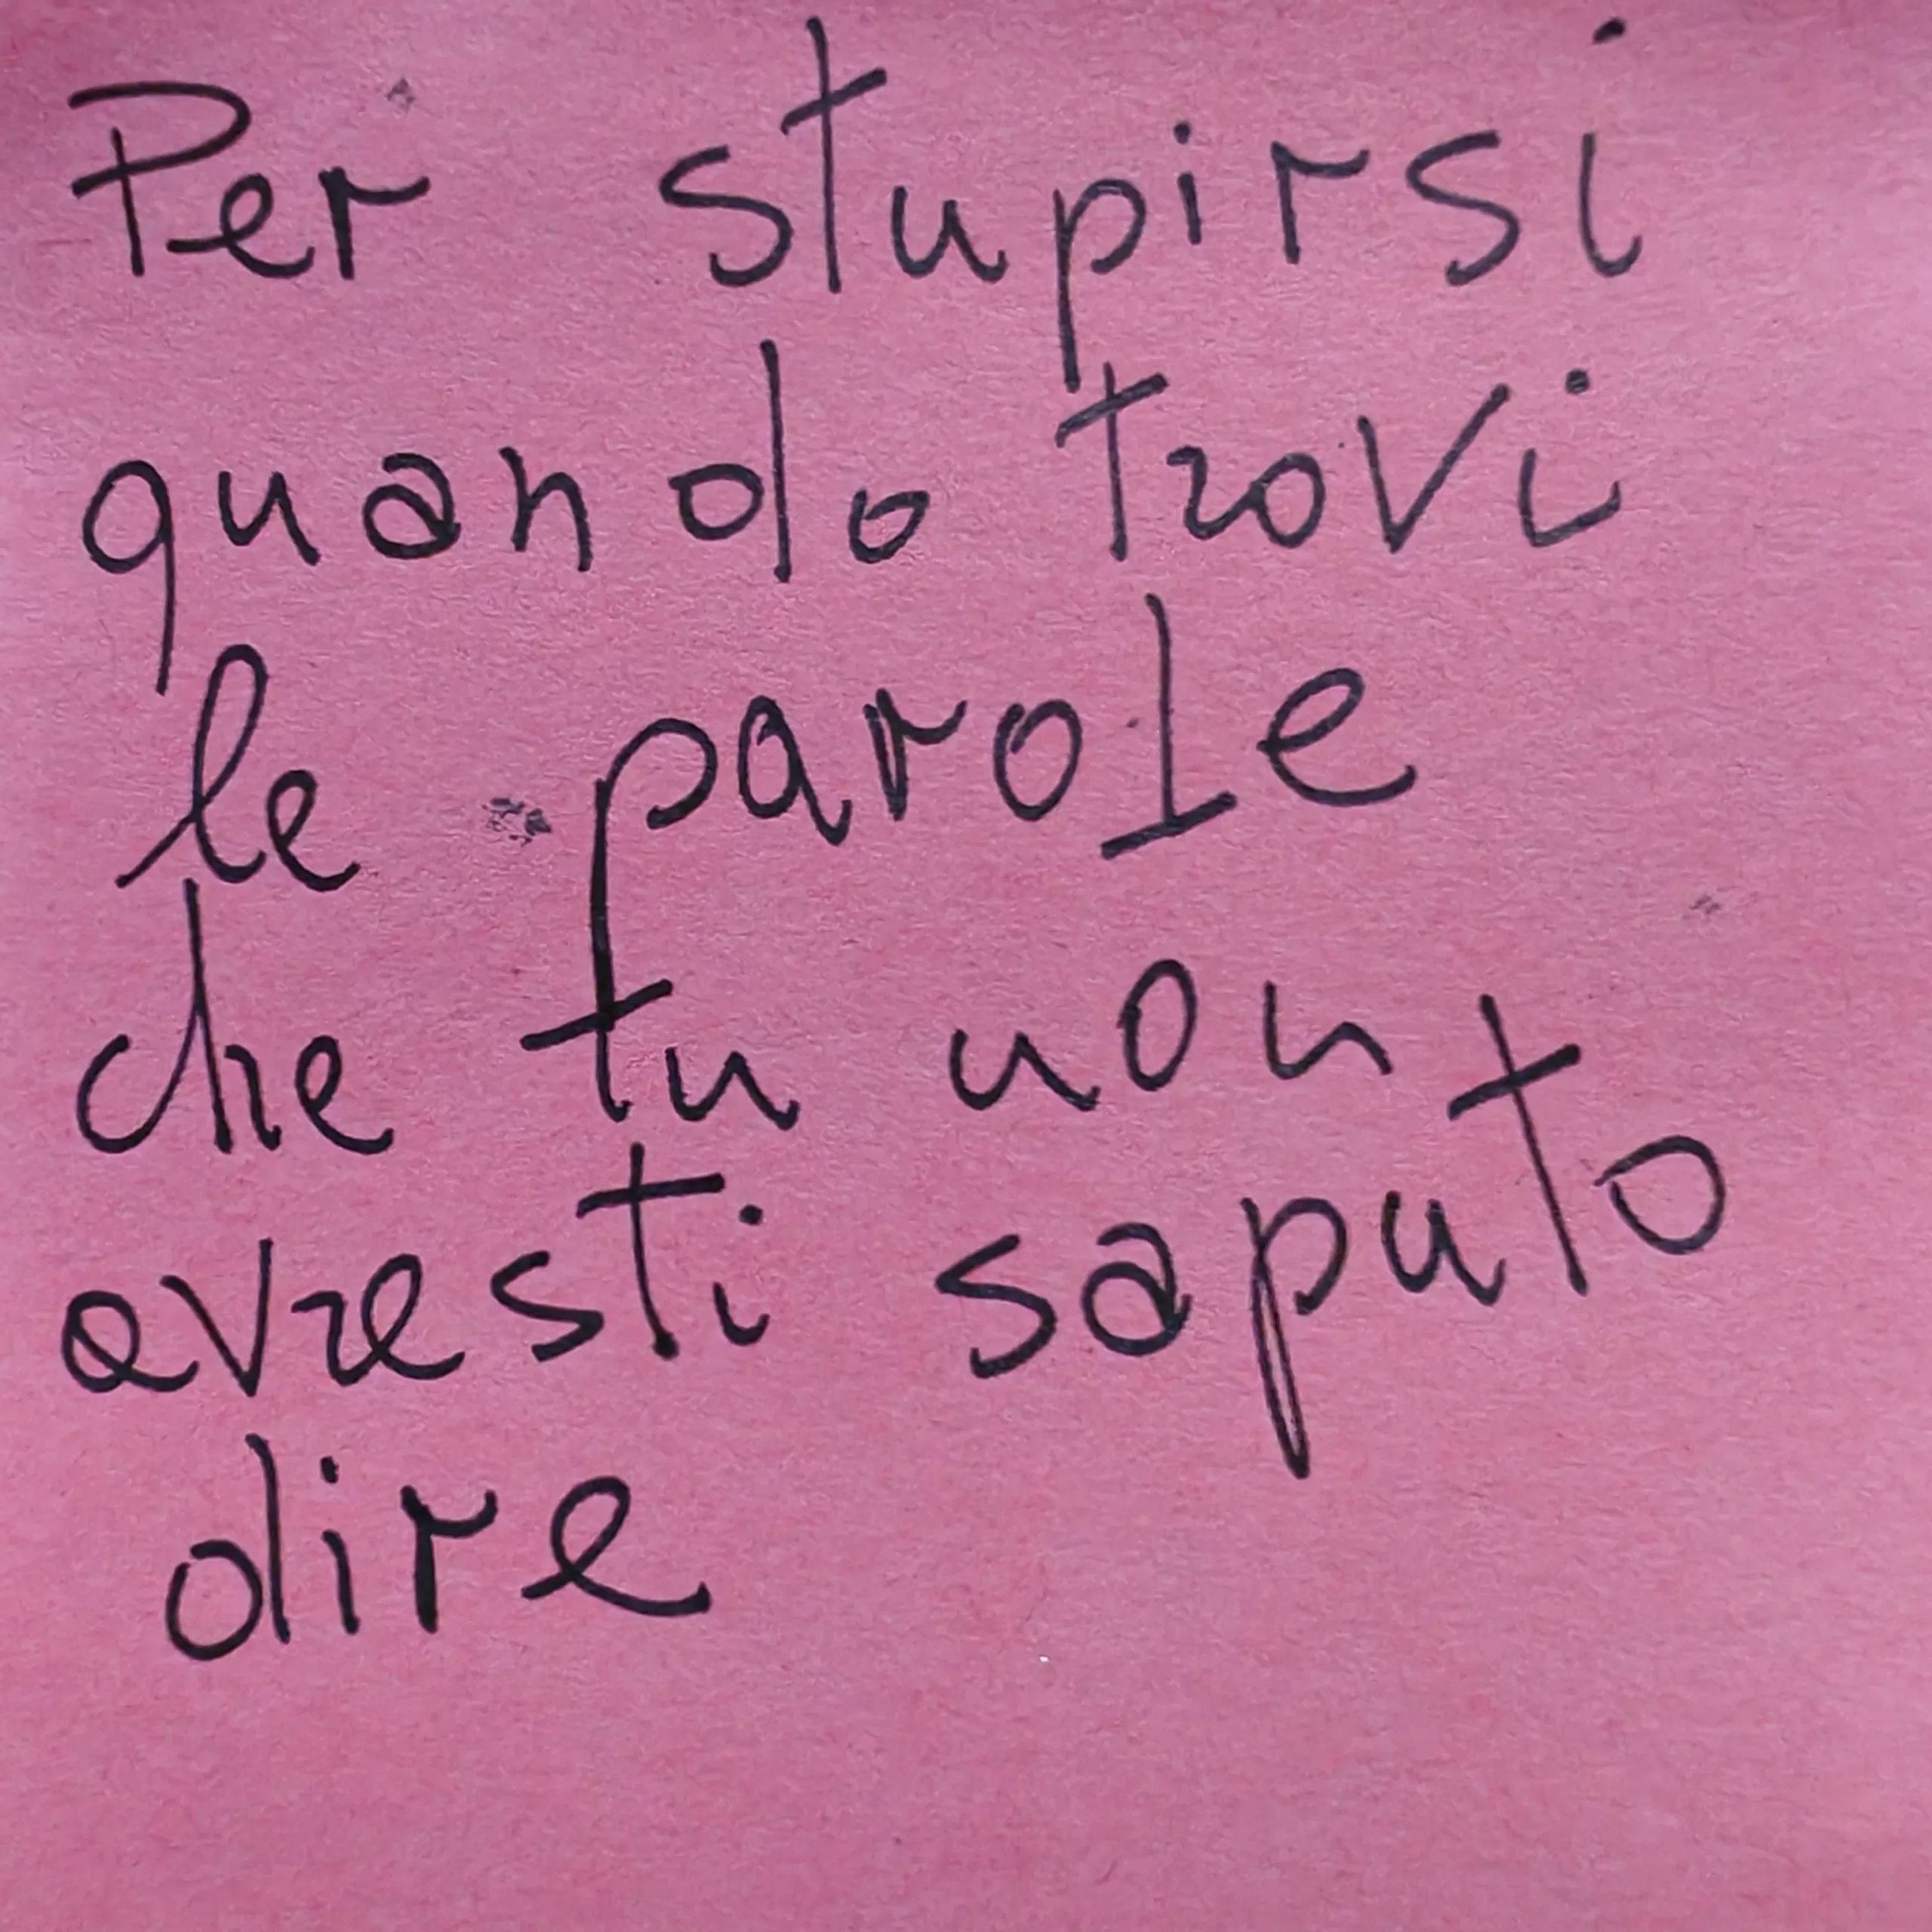 Per stupirsi
quando trovi
le parole
che tu non
avresti saputo
dire